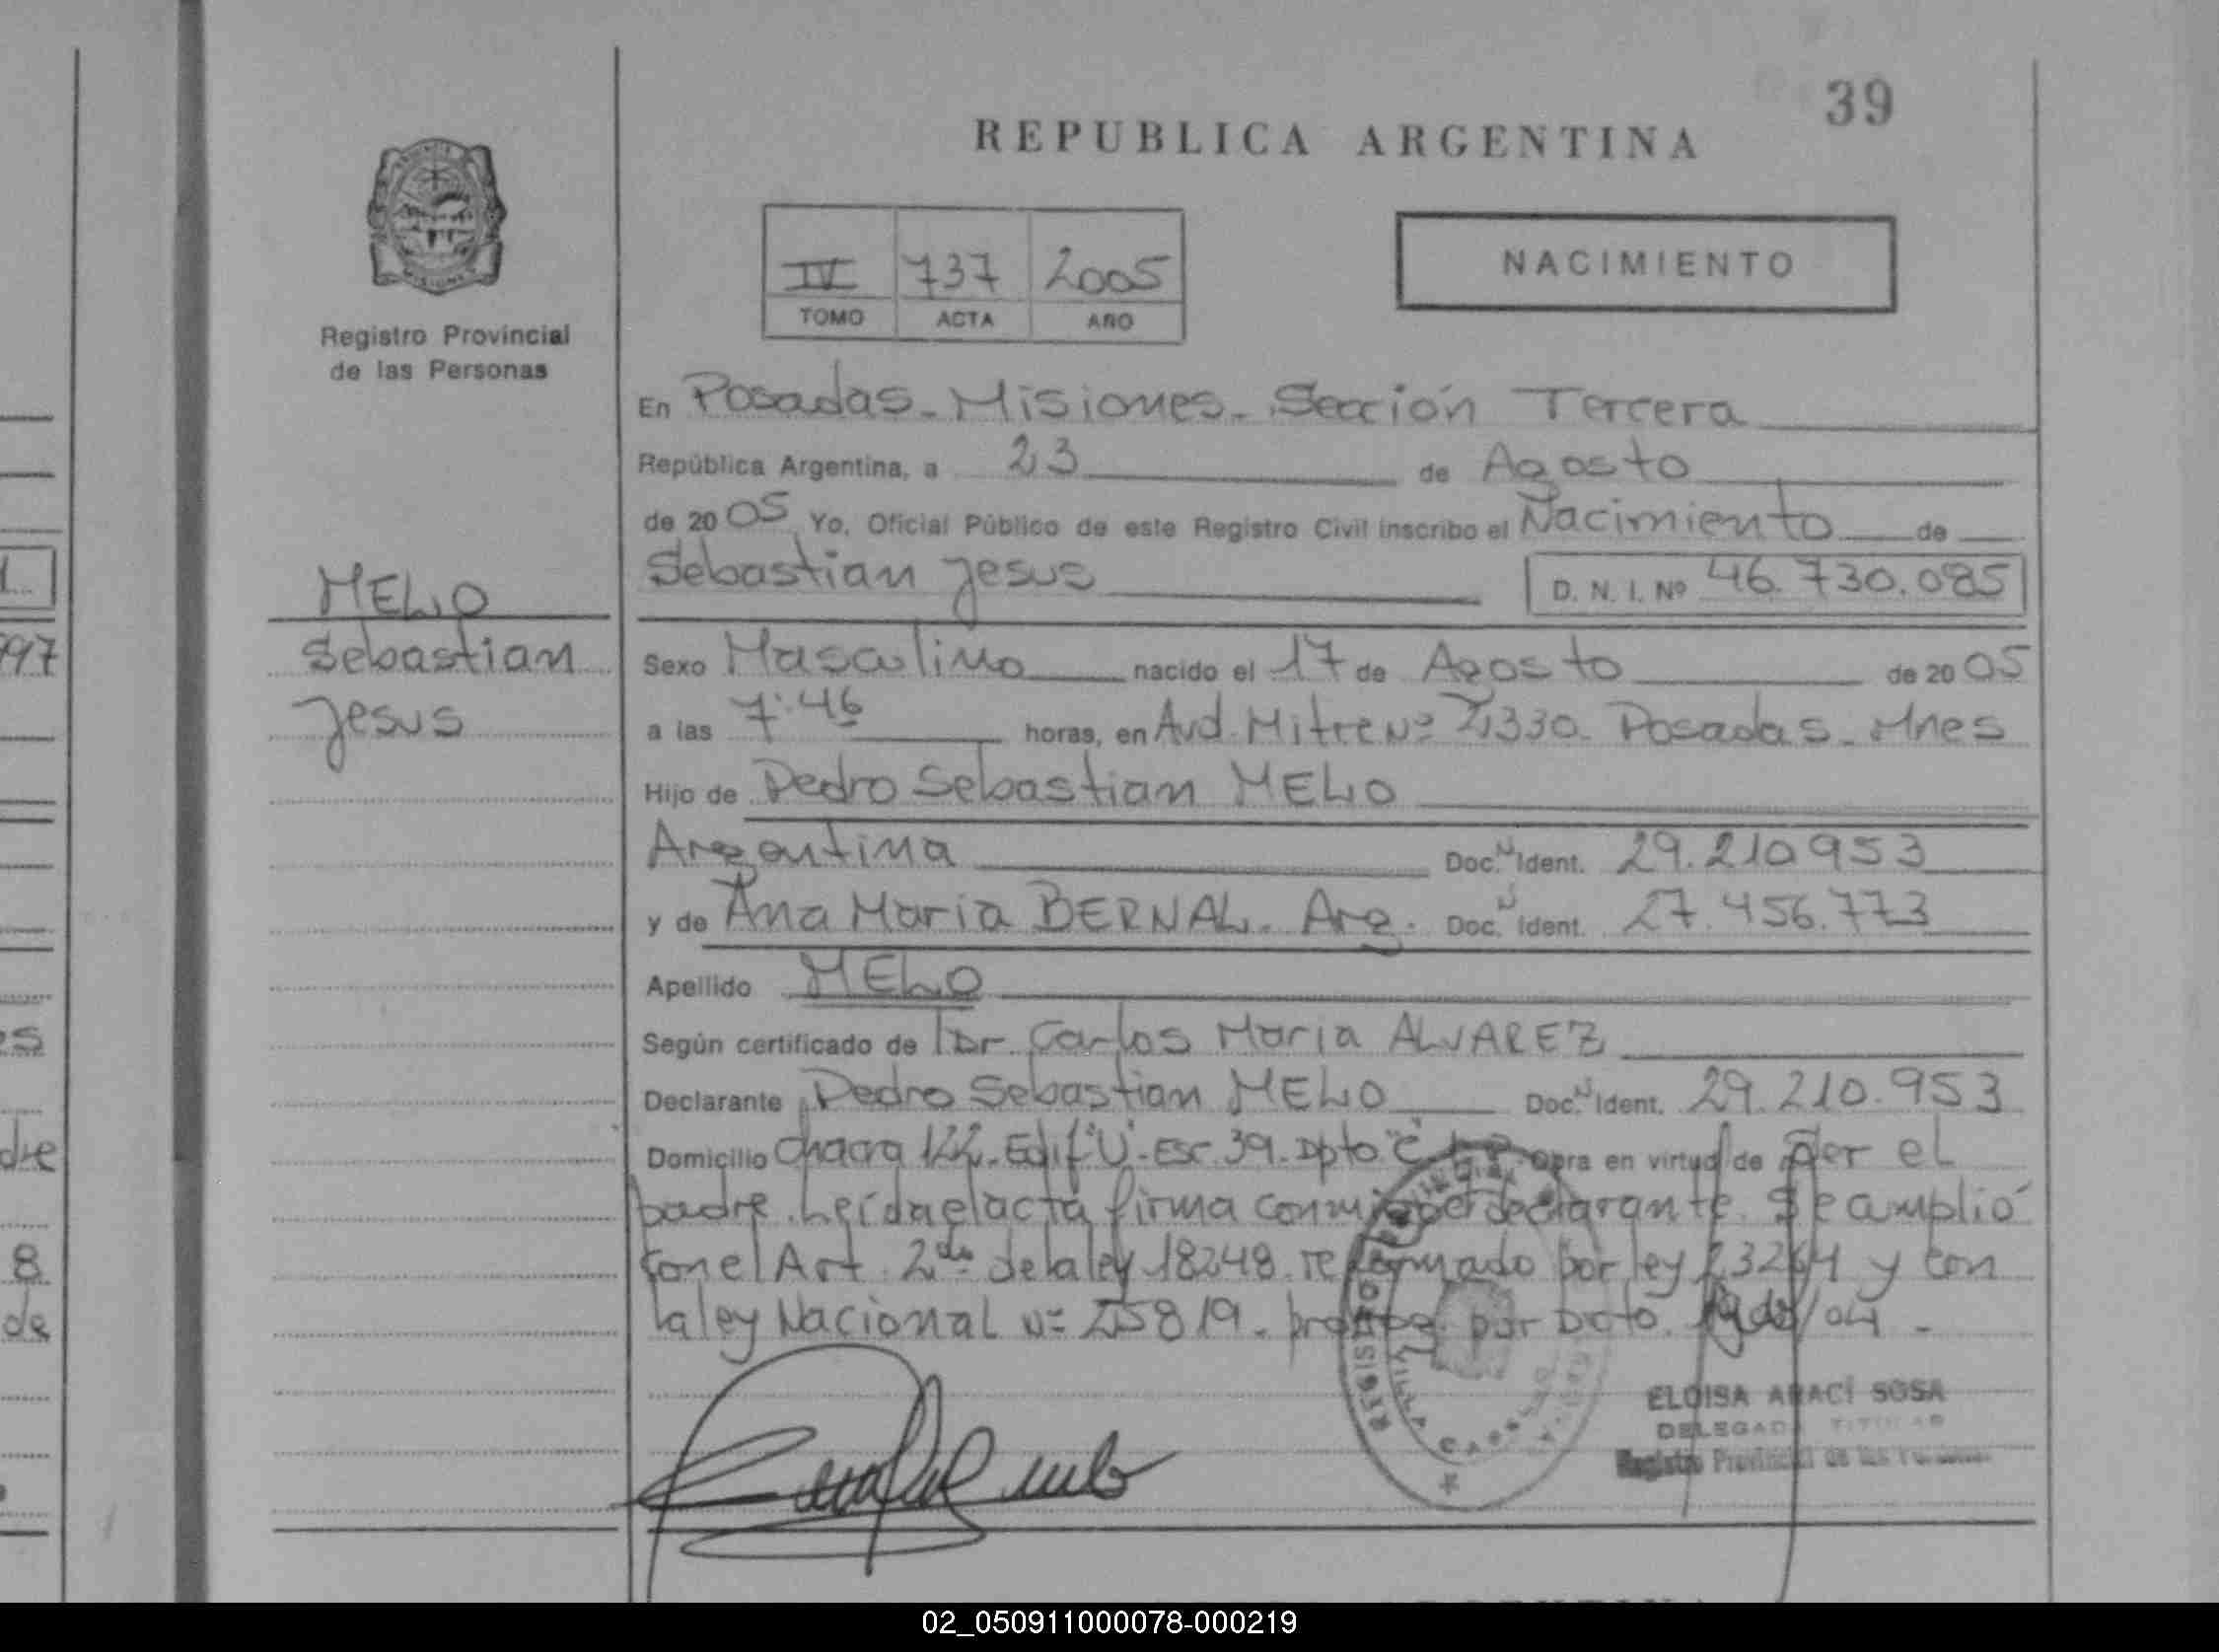 39
REPUBLICA ARGENTINA
IV 737 2005
TOMO ACTA AÑO
NACIMIENTO
Registro Provincial
de las Personas
MELO
Sebastian
Jesus
En Posadas - Misiones - Sección Tercera
República Argentina, a 23 de Agosto
de 2005 Yo, Oficial Público de este Registro Civil inscribo el Nacimiento de
Sebastian Jesus D. N. I. Nº 46.730.085
Sexo Masculino nacido el 17 de Agosto de 2005
a las 7:46 horas, en Avd. Mitre Nº 2330. Posadas - Mnes
Hijo de Pedro Sebastian MELO
Argentina Doc. N Ident. 29.210953
y de Ana Maria BERNAL. Arg. Doc. N Ident. 27.456.773
Apellido MELO
Según certificado de Dr Carlos Maria ALVAREZ
Declarante Pedro Sebastian MELO Doc. N Ident. 29.210.953
Domicilio Chacra 122. Edif "U" - Esc. 39. Dpto "C" Obra en virtud de ser el
padre. Leída el acta firma conmigo el declarante. Se amplió
con el Art. 2do de la ley 18248. reformado por ley 23264 y con
la ley Nacional Nº 25819. por Dcto. /04 -
REGISTRO PROVINCIAL
VILLA CABELLO
ELOISA ARACÍ SOSA
DELEGADA TITULAR
Registro Provincial de las Personas
997
es
8
de
02_050911000078-000219